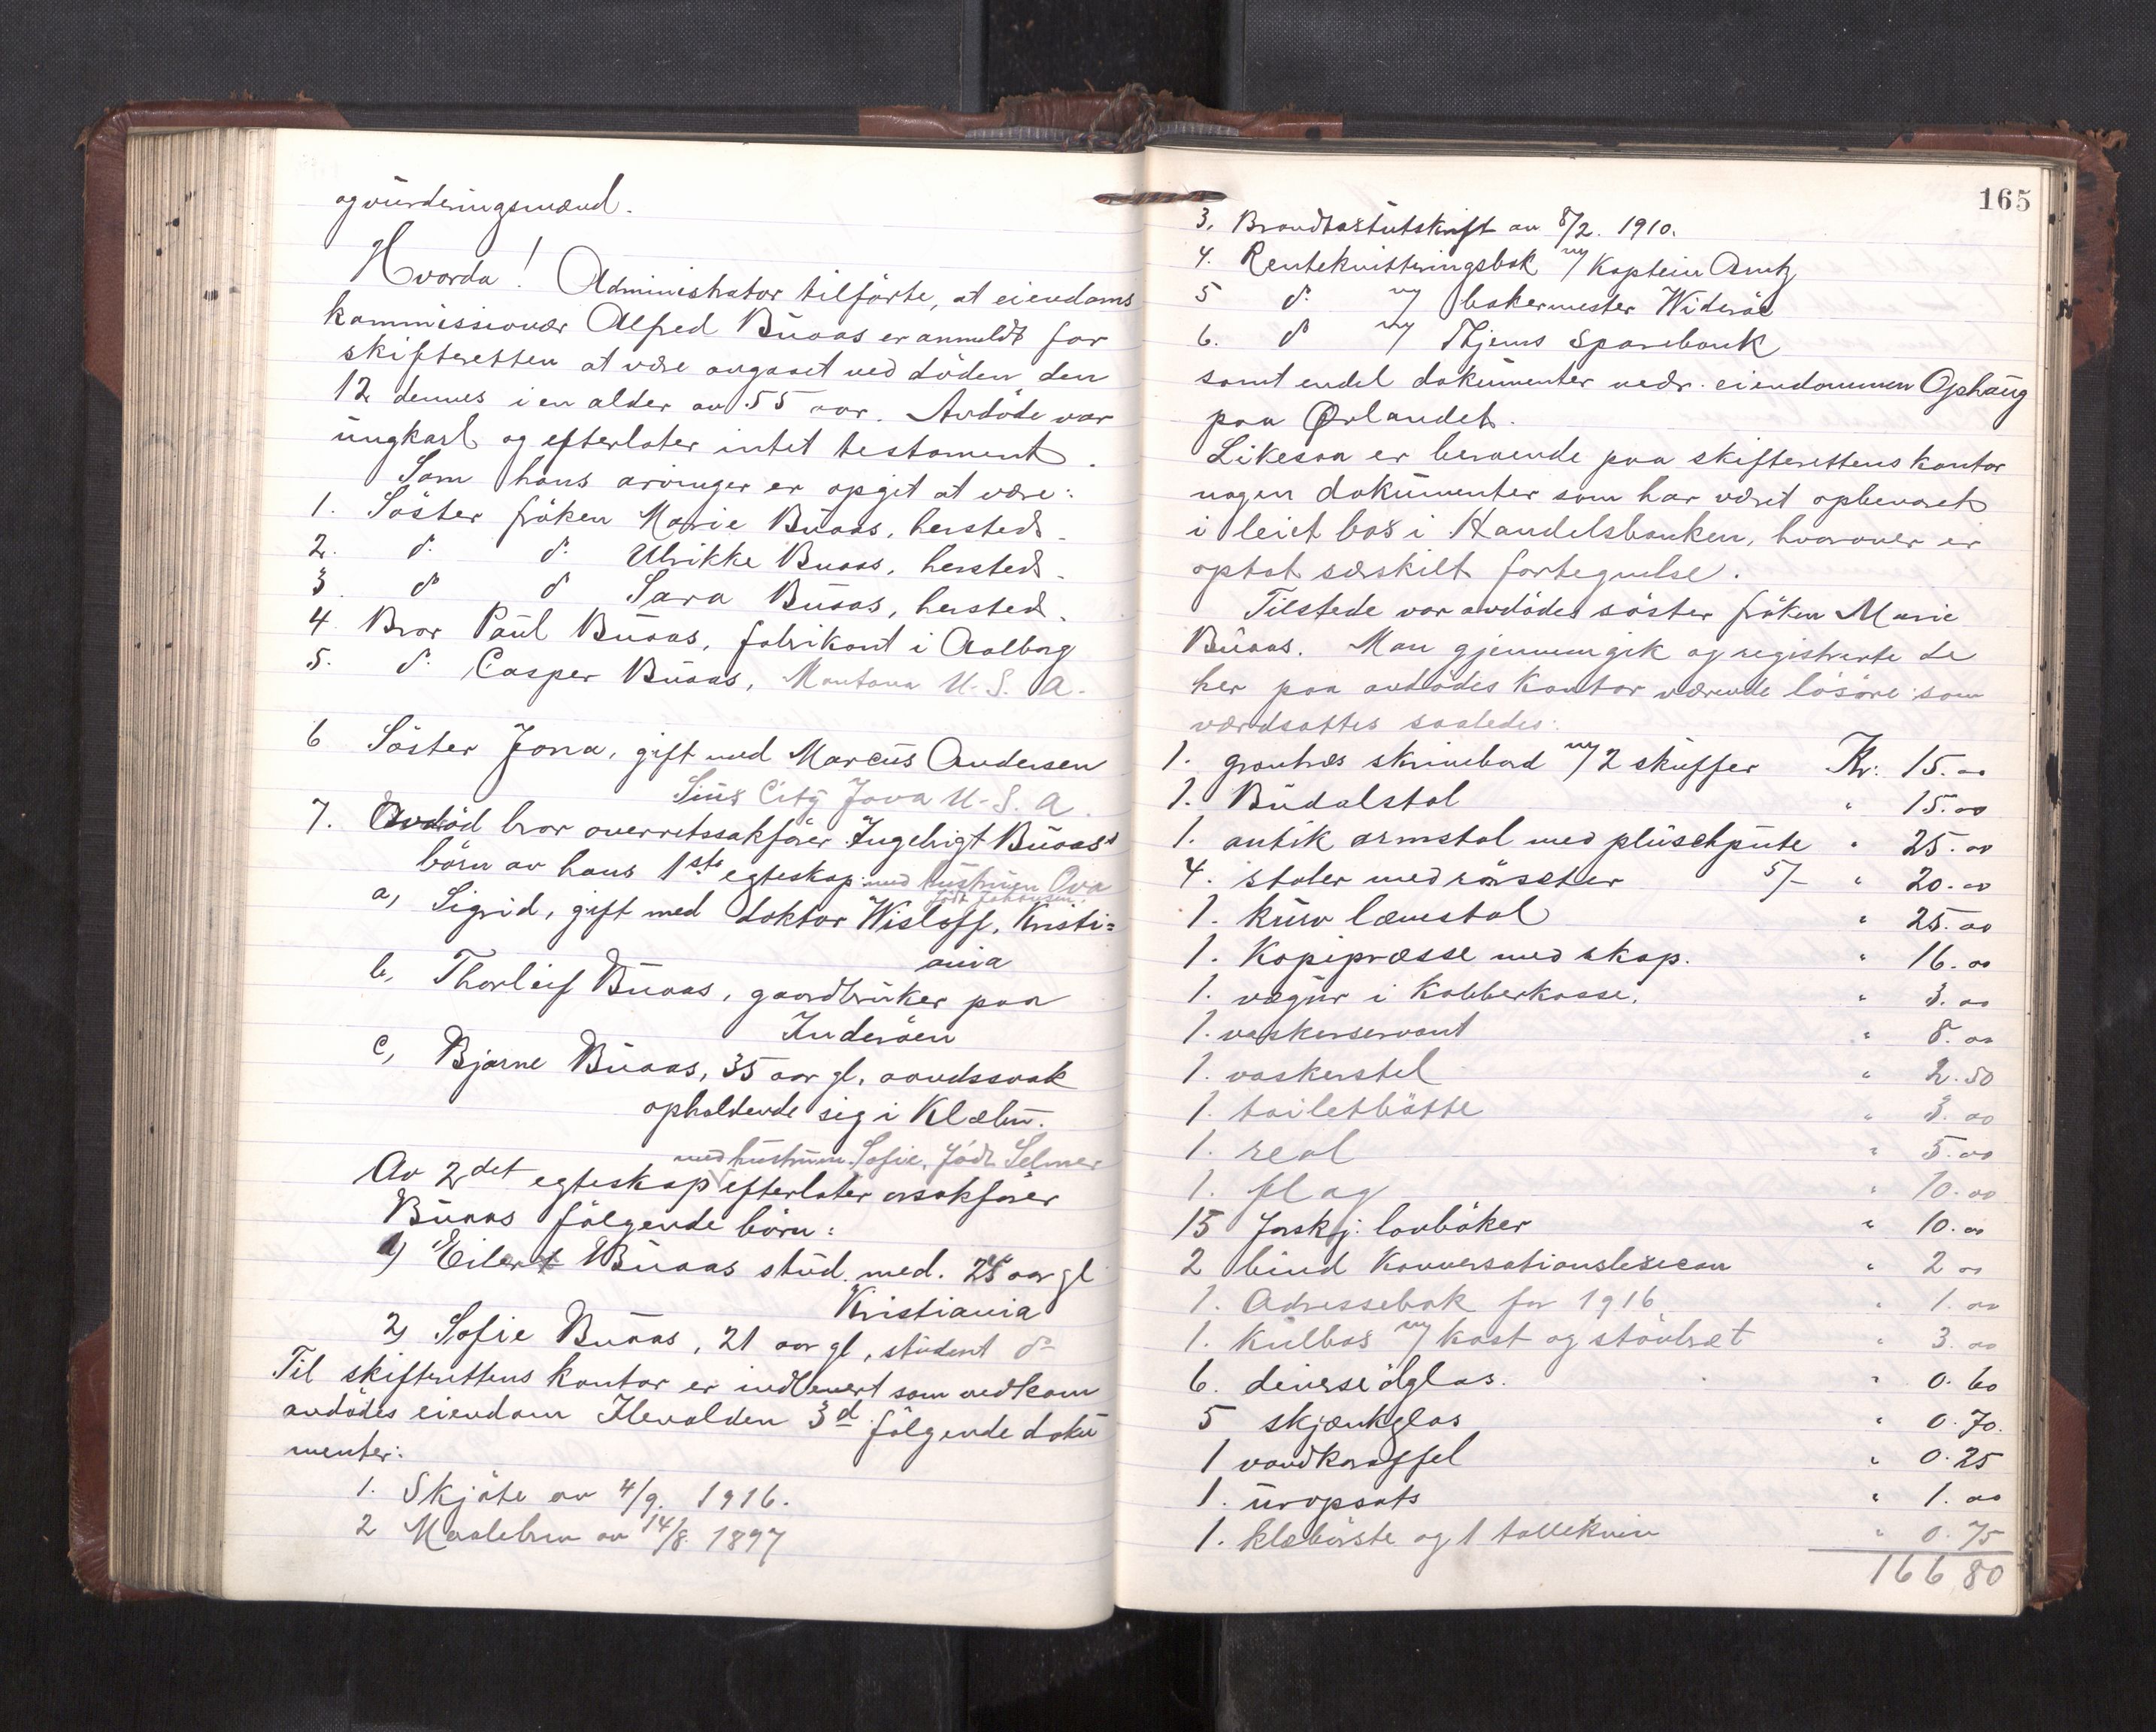 og vurderingsmænd.
Hvorda! Administrator tilførte, at eiendoms
kommissionær Alfred Buaas er anmeldt for
skifteretten at være avgaaet ved döden den
12 dennes i en alder av 55 aar. Avdöde var
ungkarl og efterlater intet testament.
Som hans arvinger er opgit at være:
1. Söster fröken Marie Buaas, hersteds.
2. do. do. Ulrikke Buaas, hersteds.
3. do do Sara Buaas, hersted.
4. Bror Paul Buaas, fabrikant i Aalborg
5. do. Casper Buaas, Montana U.S.A.
6 Söster Jona, gift med Marcus Andersen
Siux City Jova U.S.A.
7. Avdöd bror overretssakförer Ingebrigt Buaas's
börn av hans 1ste egteskap med hustruen Ova
födt Johansen.
a, Sigrid, gift med doktor Wisløff, Kristi=
ania
b, Thorleif Buaas, gaardbruker paa
Inderöen
c, Bjarne Buaas, 35 aar gl. aandssvak
opholdende sig i Klæbu.
med hustruen Sofie, född Selmer
Av 2det egteskap efterlater orsakförer
Buaas fölgende börn:
1) Eilert Buaas stud. med. 28 aar gl
Kristiania
2) Sofie Buaas, 21 aar gl, student do
Til skifterettens kontor er indlevert som vedkom
avdödes eiendom Ilevolden 3d fölgende doku
menter:
1. Skjöte av 4/9. 1916.
2 Maalebrev av 14/8. 1897
165
3. Brandtakstutskrift av 8/2. 1910.
4. Rentekvitteringsbok m/ Kaptein Arntz
5 do. m/ bakermester Wideröe
6. do m/ Thjems Sparebank
samt endel dokumenter vedr. eiendommen Ophaug
paa Ørlandet.
Likesaa er beroende paa skifterettens kontor
nogen dokumenter som har været opbevaret
i leiet box i Handelsbanken, hvorover er
optat særskilt fortegnelse.
Tilstede var avdödes söster fröken Marie
Buaas. Man gjennemgik og registrerte de
her paa avdödes kontor værende lösöre som
værdsattes saaledes:
1. grantræs skrivebord m/ 2 skuffer Kr: 15.00
1. Budalstol " 15.00
1. antik armstol med pluschpute " 25.00
4. stoler med rörsæter 5/- " 20.00
1. kurv lænestol " 25.00
1. Kopipræsse med skap. " 16.00
1. vægur i Kobberkasse. " 3.00
1. vaskerservant " 8.00
1. vaskerstel " 2.50
1. toiletbøtte " 3.00
1. reol " 5.00
1. flag " 10.00
15 forskj. lovböker " 10.00
2 bind Konversationslexicon " 2 00
1. Adressebok for 1916 " 1.00
1. kulbox m/ kost og stövbræt " 3.00
6. diverse ölglas. " 0.60
5 skjænkglas " 0.70.
1 vandkaraffel " 0.25
1. uropsats " 1.00
1. klæbörste og 1 tollekniv " 0.75
166 80